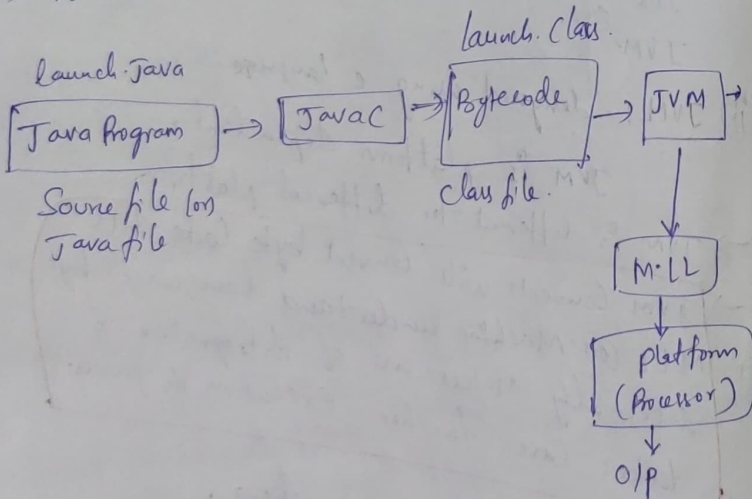 launch.Java
Java Program
Source file (or)
Java file
JavaC
launch.Class.
Bytecode
Class file.
JVM
M.LL
platform
(Processor)
O/P